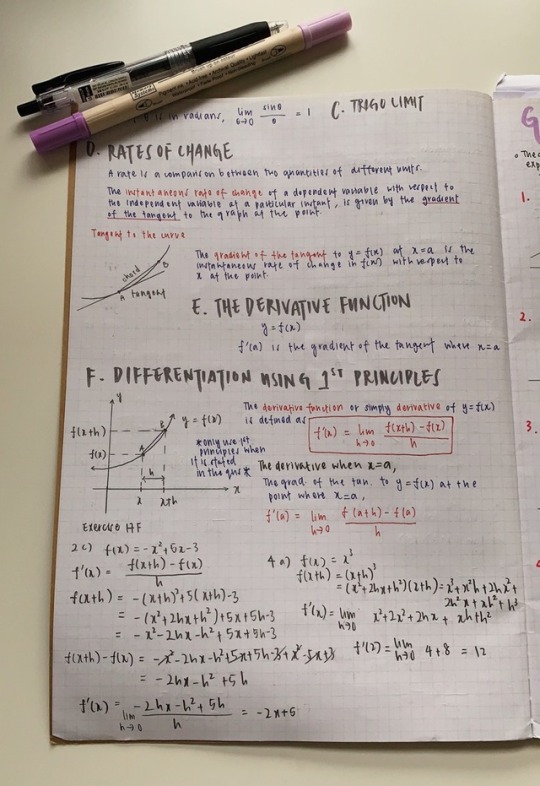 is in radians, lim θ→0 sinθ/θ = 1
C. TRIGO LIMIT
D. RATES OF CHANGE
A rate is a comparison between two quantities of different units.
The instantaneous rate of change of a dependent variable with respect to
the independent variable at a particular instant, is given by the gradient
of the tangent to the graph at the point.
Tangent to the curve
chord
B
A tangent
The gradient of the tangent to y = f(x) at x=a is the
instantaneous rate of change in f(x) with respect to
x at the point.
E. THE DERIVATIVE FUNCTION
y = f(x)
f'(a) is the gradient of the tangent where x=a
F. DIFFERENTIATION USING 1ST PRINCIPLES
y
y = f(x)
f(x+h)
f(x)
B
A
h
x
x+h
x
*only use 1st
principles when
it is stated
in the qns*
The derivative function or simply derivative of y=f(x)
is defined as
f'(x) = lim h→0 f(x+h) - f(x) / h
The derivative when x=a,
The grad. of the tan. to y=f(x) at the
point where x=a,
f'(a) = lim h→0 f(a+h) - f(a) / h
Exercise HF
2c) f(x) = -x²+5x-3
f'(x) = f(x+h) - f(x) / h
f(x+h) = -(x+h)²+5(x+h)-3
= -(x²+2hx+h²)+5x+5h-3
= -x²-2hx-h²+5x+5h-3
f(x+h) - f(x) = -x²-2hx-h²+5x+5h-3+x²-5x+3
= -2hx-h²+5h
f'(x) = lim h→0 -2hx-h²+5h / h = -2x+5
4a) f(x) = x³
f(x+h) = (x+h)³
= (x²+2hx+h²)(x+h) = x³+x²h+2hx²+
2h²x+xh²+h³
f'(x) = lim h→0 x²+2x²+2hx + xh+h²
f'(2) = lim h→0 4+8 = 12
G
1.
2.
3.